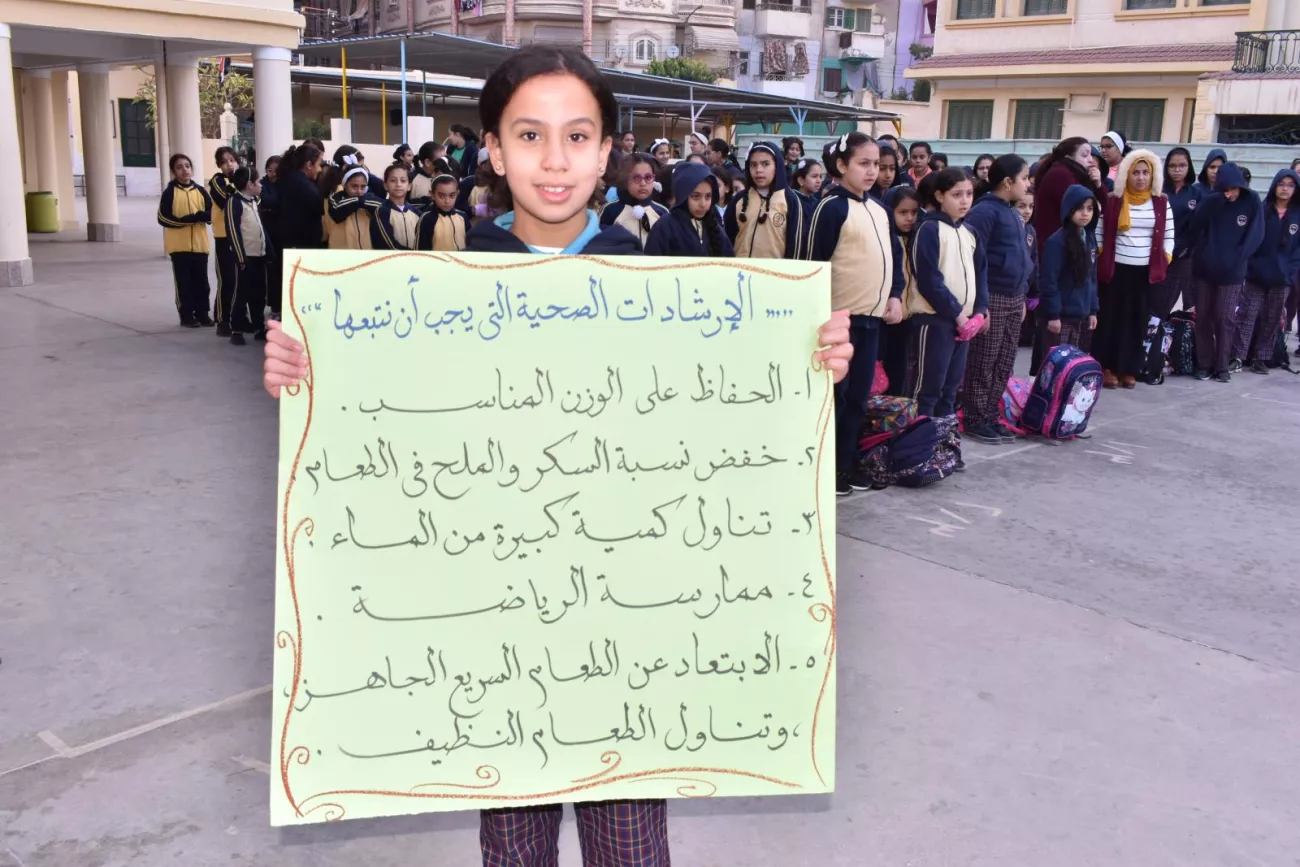 ,,,,, الإرشادات الصحية التي يجب أن نتبعها "
١- الحفاظ على الوزن المناسب .
٢- خفض نسبة السكر والملح في الطعام
٣- تناول كمية كبيرة من الماء .
٤- ممارسة الرياضة .
٥- الابتعاد عن الطعام السريع الجاهز،
،وتناول الطعام النظيف .